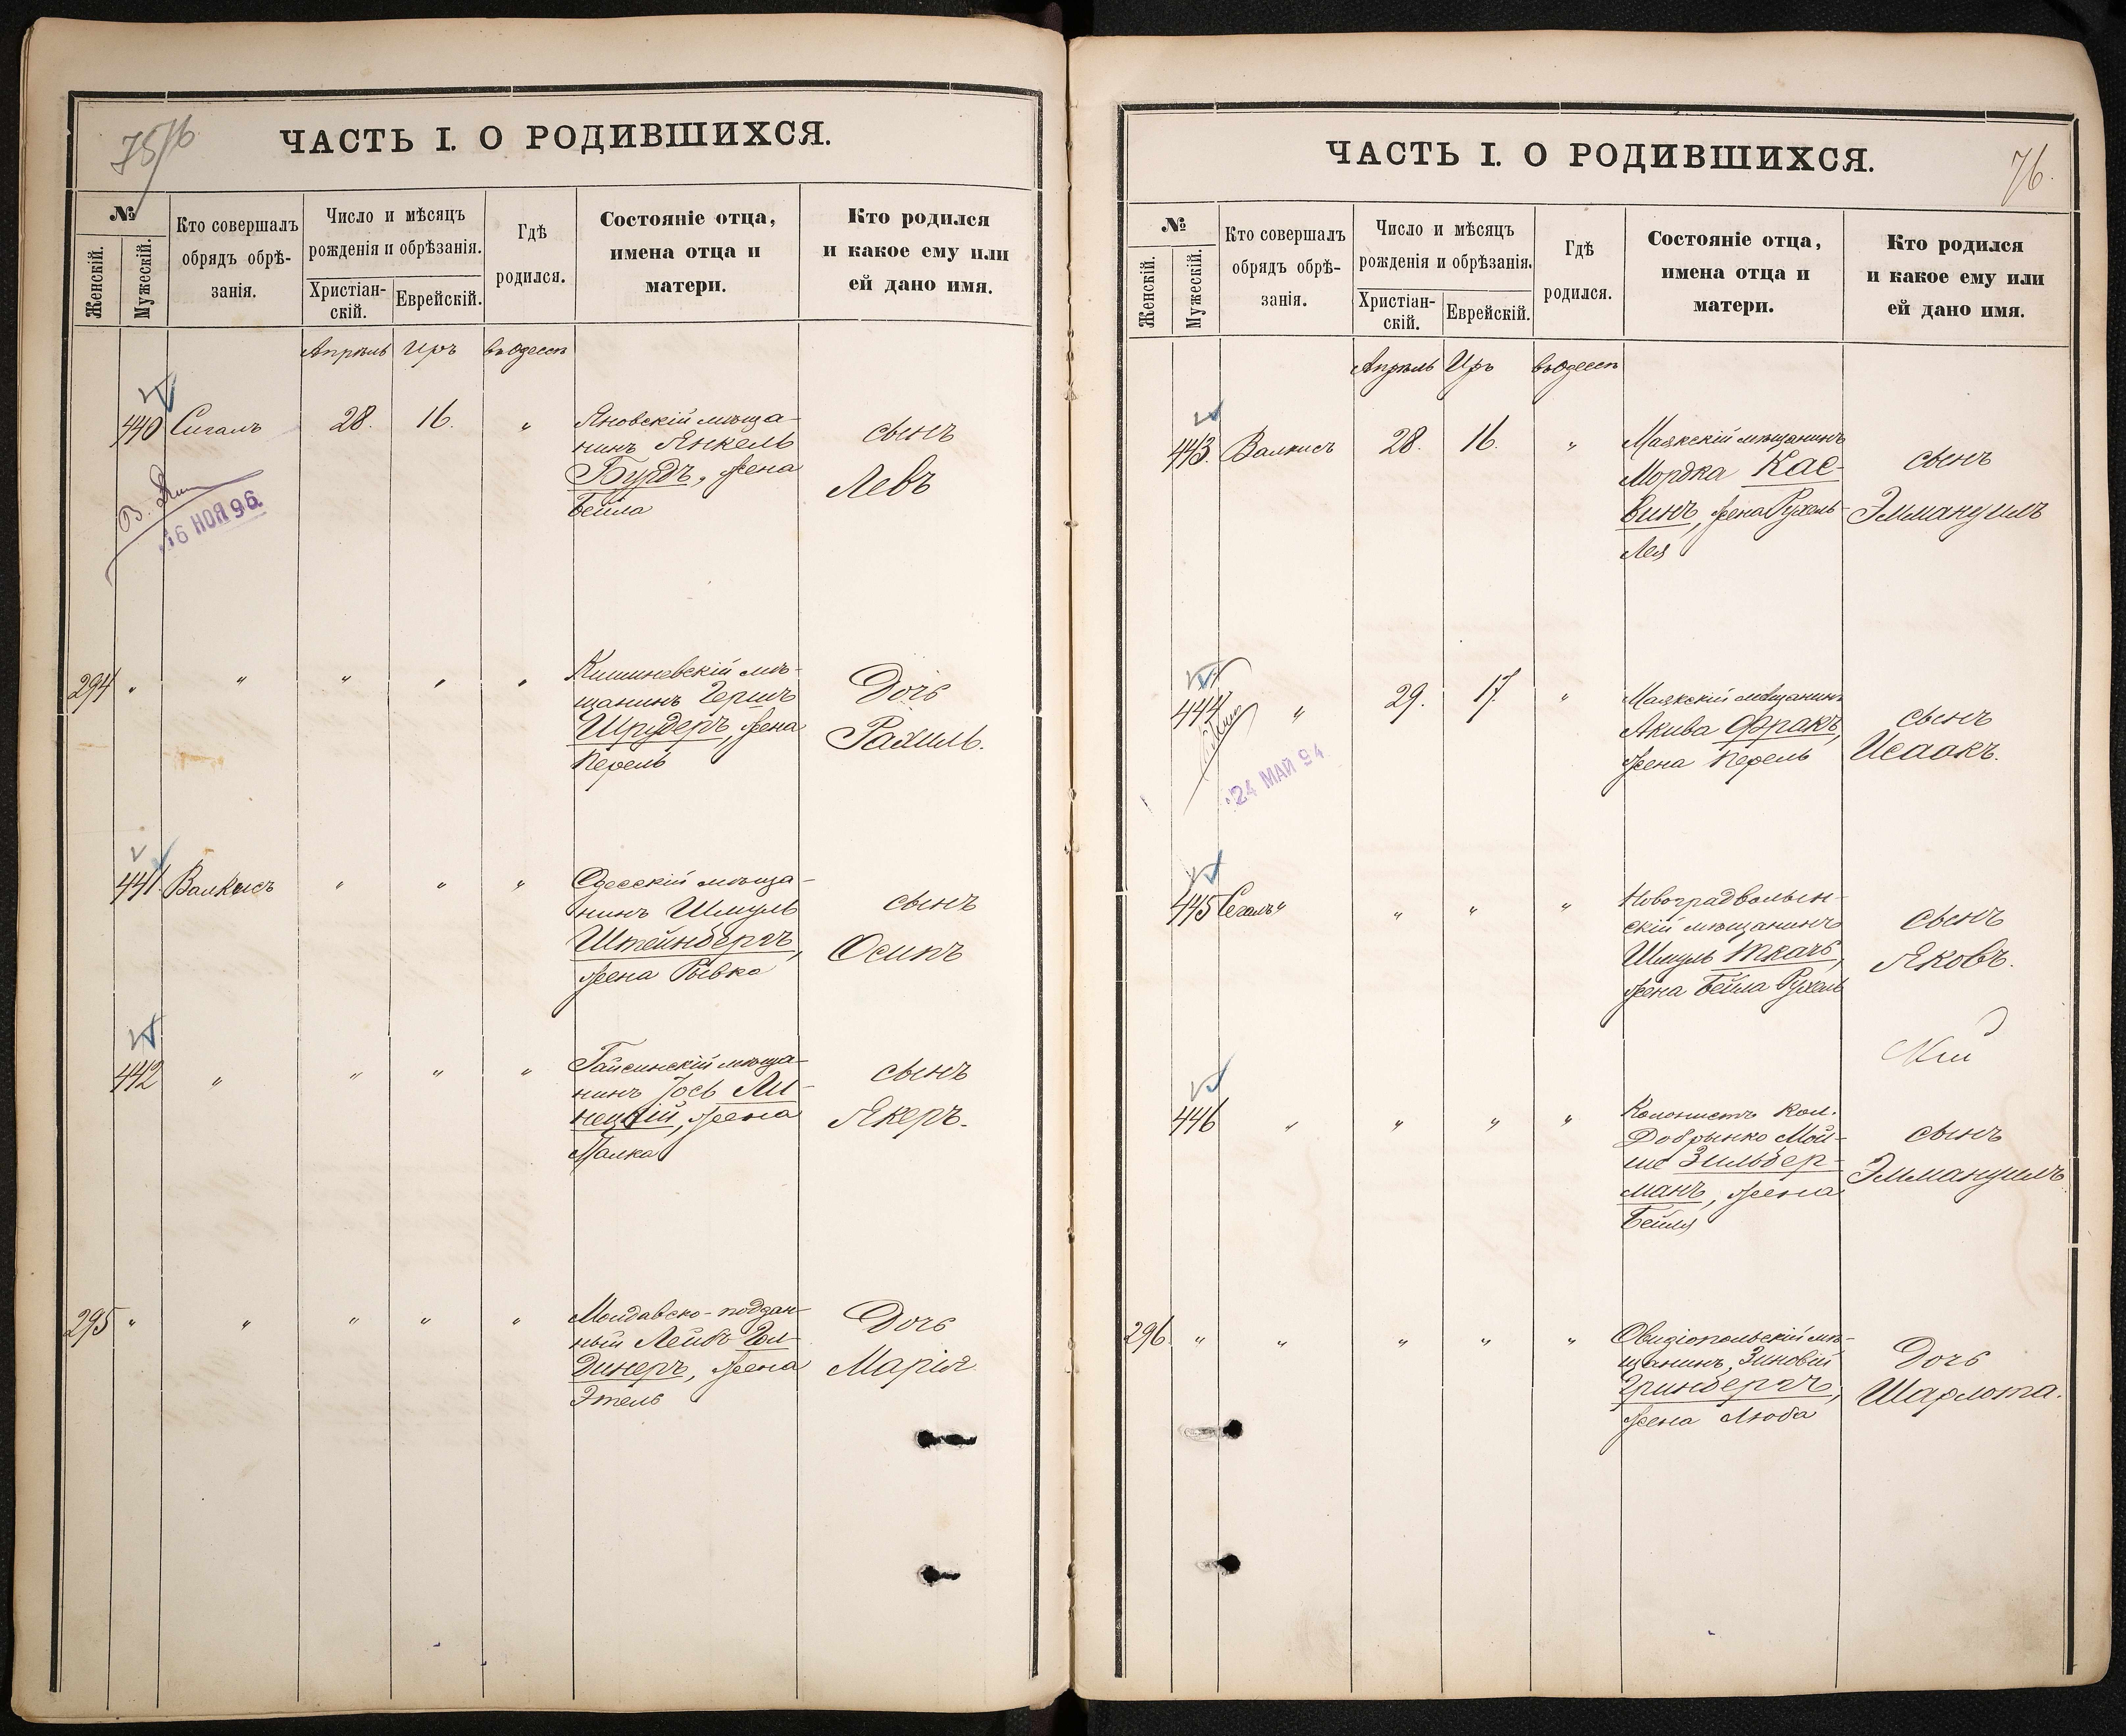 75/76
ЧАСТЬ I. О РОДИВШИХСЯ.
№
Женскій.
Мужескій.
Кто совершалъ
обрядъ обрѣ-
занія.
Число и мѣсяцъ
рожденія и обрѣзанія.
Христіан-
скій.
Еврейскій.
Гдѣ
родился.
Состояніе отца,
имена отца и
матери.
Кто родился
и какое ему или
ей дано имя.
Апрѣль Иръ въ Одессѣ
440 Сигалъ 28. 16. "
Яновскій мѣща-
нинъ Янкель
Бурдъ, жена
Бейла
сынъ
Левъ
16 НОЯ 96
294 " " " " "
Кишиневскій мѣ-
щанинъ Гершъ
Шрудеръ, жена
Перель
Дочь
Рахиль.
441 Валкисъ " " "
Одесскій мѣща-
нинъ Шмуль
Штейнбергъ,
жена Рывка
сынъ
Осипъ
442 " " " "
Гайсинскій мѣща-
нинъ Іось Ли-
нецкій, жена
Малка
сынъ
Якеръ.
295 " " " " "
Молдавско-поддан-
ный Лейбъ Гол-
динеръ, жена
Этель
Дочь
Марія
ЧАСТЬ I. О РОДИВШИХСЯ.
76.
№
Женскій.
Мужескій.
Кто совершалъ
обрядъ обрѣ-
занія.
Число и мѣсяцъ
рожденія и обрѣзанія.
Христіан-
скій.
Еврейскій.
Гдѣ
родился.
Состояніе отца,
имена отца и
матери.
Кто родился
и какое ему или
ей дано имя.
Апрѣль Иръ въ Одессѣ
443. Валкисъ 28. 16. "
Маякскій мѣщанинъ
Мордка Кас-
винъ, жена Рухель
Лея
сынъ
Эммануилъ
444 " 29. 17. "
Маякскій мѣщанинъ
Акива Фракъ,
жена Перель
сынъ
Исаакъ.
24 МАЙ 94
445 Сегалъ " " " "
Новоградволын-
скій мѣщанинъ
Шмуль Ткачъ,
жена Бейла Рухель
сынъ
Яковъ.
446 " " " "
Колонистъ кол.
Добрынко Мой-
ше Зильбер-
манъ, жена
Бейля
сынъ
Эммануилъ
296. " " " " "
Овидіопольскій мѣ-
щанинъ, Зиновій
Гринбергъ,
жена Люба
Дочь
Шарлота.